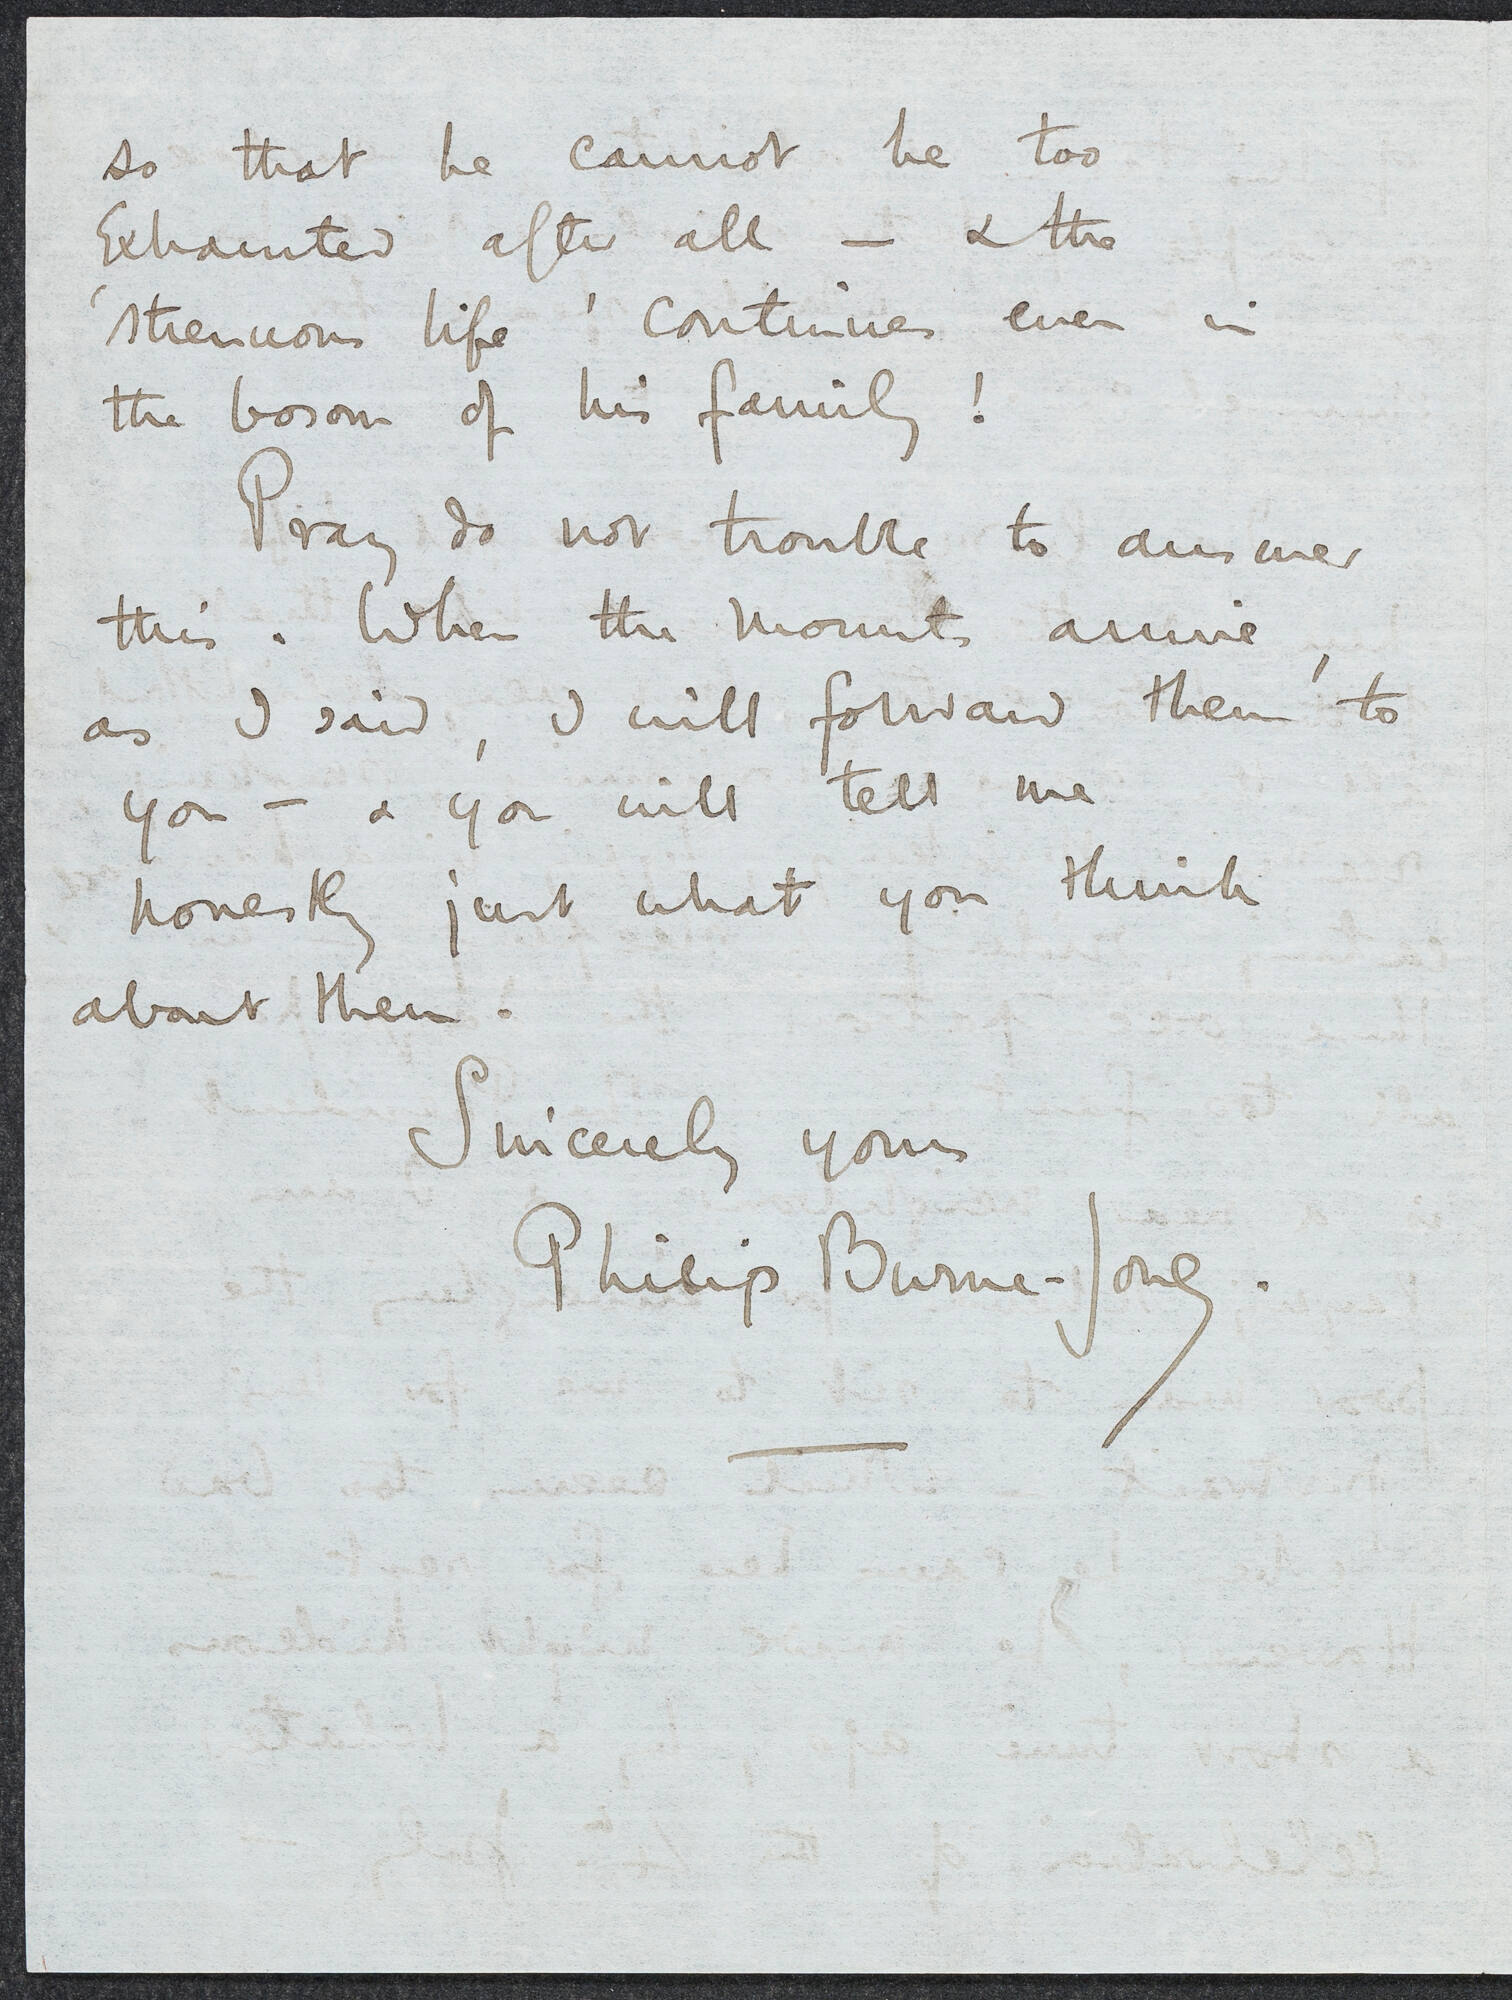 so that he cannot be too
Exhausted after all — & the
'strenuous life' continues even in
the bosom of his family!
Pray do not trouble to answer
this. When the mounts arrive,
as I said, I will forward them to
you — & you will tell me
honestly just what you think
about them.
Sincerely yours
Philip Burne-Jones.